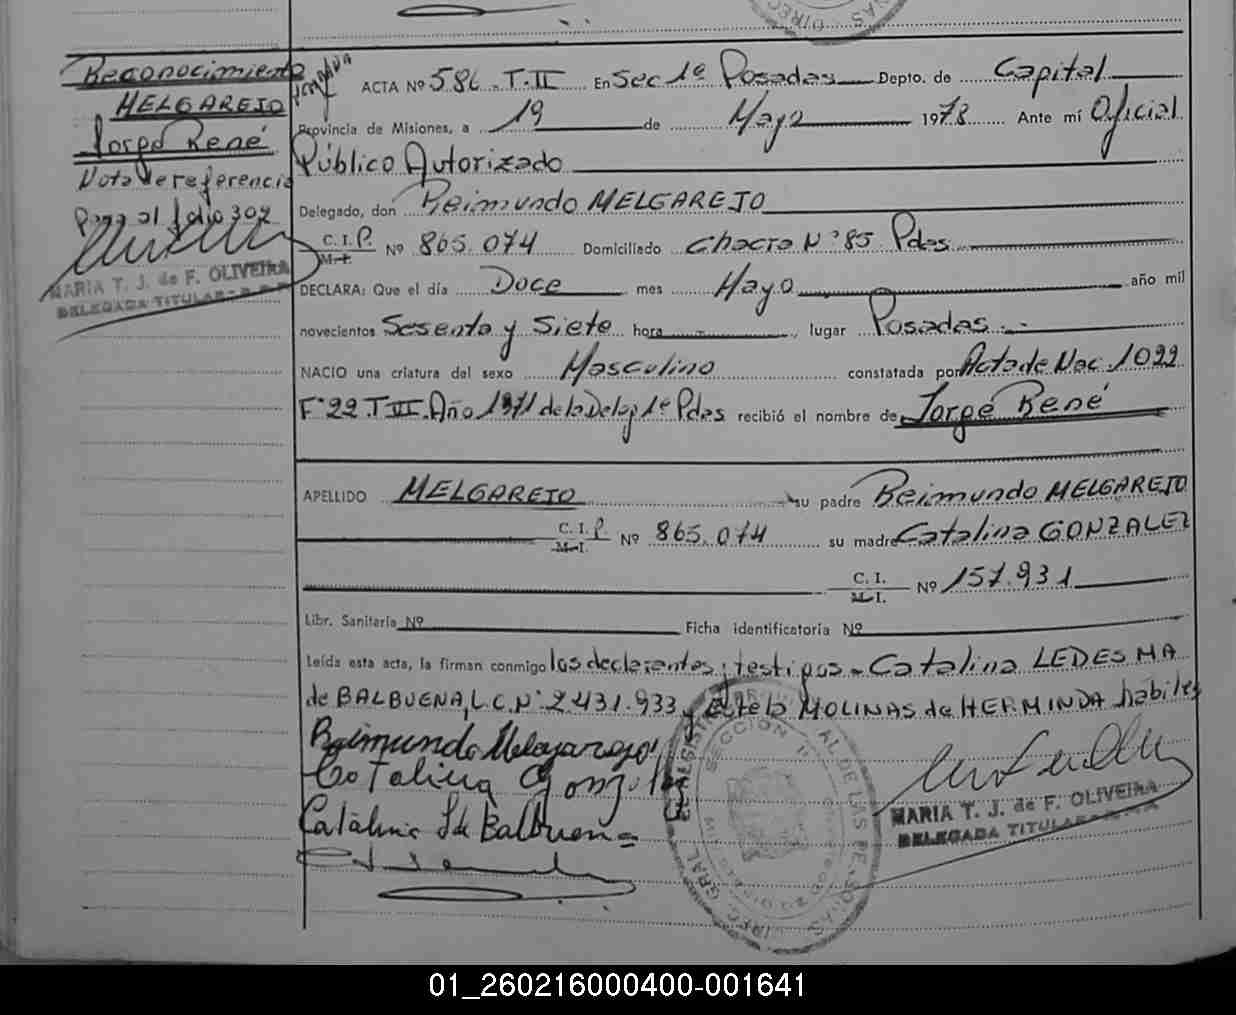 Reconocimiento
MELGAREJO
Jorge René
Nota de referencia
pasa al folio 302
MARIA T. J. de F. OLIVEIRA
DELEGADA TITULAR
ACTA Nº 586 - T. II En Sec 1ª Posadas Depto. de Capital
Provincia de Misiones, a 19 de Mayo 1978 Ante mí Oficial
Público Autorizado
Delegado, don Reimundo MELGAREJO
C. I. P. M. I. Nº 865.074 Domiciliado Chacra Nº 85 Pdas
DECLARA: Que el día Doce mes Mayo año mil
novecientos Sesenta y Siete hora - , lugar Posadas.-
NACIO una criatura del sexo Masculino constatada por Acta de Nac. 1022
Fº 22 T III. Año 1971 de la Deleg 1ª Pdas recibió el nombre de Jorge René
APELLIDO MELGAREJO su padre Reimundo MELGAREJO
C. I. P. M. I. Nº 865.074 su madre Catalina GONZALEZ
C. I. M. I. Nº 157.931
Libr. Sanitaria Nº Ficha identificatoria Nº
Leída esta acta, la firman conmigo los declarantes y testigos - Catalina LEDESMA
de BALBUENA, L.C. Nº 2.431.933 y Estela MOLINAS de HERMINDA hábiles
Reimundo Melgarejo
Catalina Gonzalez
Catalina L de Balbuena
MARIA T. J. de F. OLIVEIRA
DELEGADA TITULAR
SECCION 1ª
01_260216000400-001641